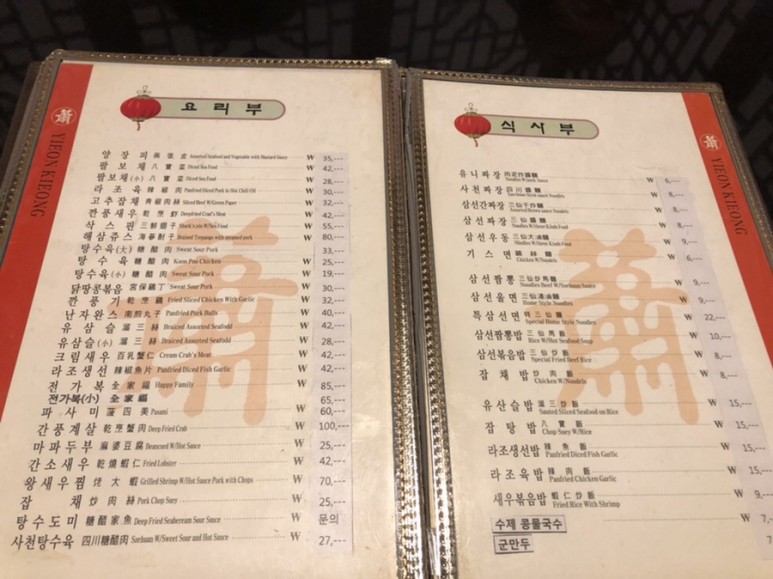 요리부
YIEON KIEONG
양장피 兩張皮 Assorted Seafood and Vegetable with Mustard Sauce W 35,---
팔보채 八寶菜 Diced Sea Food W 42,---
팔보채(小) 八寶菜 Diced Sea Food W 28,---
라조육 辣椒肉 Panfried Diced Pork in Hot Chili Oil W 30,---
고추잡채 靑椒肉絲 Sliced Beef W/Green Paper W 28,---
깐풍새우 乾烹虾 Deepfried Crad's Meat W 42,---
삭스핀 三鮮翅子 W 55,---
해삼쥬스 海參肘子 Braised Trepangs with steamed pork W 80,---
탕수육(大) 糖醋肉 Sweat Sour Pork W 33,---
탕수육 糖醋肉 W 25,---
탕수육(小) 糖醋肉 Sweat Sour Pork W 19,---
닭땅콩볶음 宮保雞丁 Sweat Sour Pork W 30,---
깐풍기 乾烹雞 Fried Sliced Chicken With Garlic W 32,---
난자완스 南煎丸子 Panfried Pork Balls W 40,---
유삼슬 溜三絲 Braiced Assorted Seafodd W 42,---
유삼슬(小) 溜三絲 Braiced Assorted Seafodd W 28,---
크림새우 百乳蟹仁 Cream Crab's Meat W 42,---
라조생선 辣椒魚片 Panfried Diced Fish Garlic W 42,---
전가복 全家福 Happy Family W 85,---
전가복(小) 全家福 65,---
파사미 菠四美 Pasani W 60,---
간풍게살 乾烹蟹肉 Deep Fried Crab W 100,---
마파두부 麻婆豆腐 Beancurd W/Hot Sauce W 25,---
간소새우 乾燒蝦仁 Fried Lobster W 42,---
왕새우찜 烤大蝦 Grilled Shrimp W/Hot Sauce Pork with Chops W 70,---
잡채 炒肉絲 Pork Chop Suey W 25,---
탕수도미 糖醋家魚 Deep Fried Seabream Sour Sauce W 문의
사천탕수육 四川糖醋肉 Sxehuan W/Sweet Sour and Hot Sauce W 27,---
식사부
YIEON KIEONG
유니짜장 肉泥炸醬麵 W 6,---
사천짜장 四川醬麵 W 8,---
삼선간짜장 三仙干炸麵 W 9,---
삼선짜장 三仙醬麵 W 8,---
삼선우동 三仙大滷麵 W 9,---
기스면 鷄絲麵 Chicken W/Noodels W
삼선짬뽕 三仙炒馬麵 W 9,---
삼선울면 三仙溫滷麵 Home Style Noodles W 9,---
특삼선면 特三仙麵 Special Home Style Noodles W 22,---
삼선짬뽕밥 三仙馬飯 Rice W/Hot Seafood Soup W 10,---
삼선볶음밥 三仙炒飯 Special Fried Beef Rice W 8,---
잡채밥 炒肉飯 Chicken W/Noodels W 8,---
유산슬밥 溜三炒飯 Sauted Sliced Seafood on Rice W 15,---
잡탕밥 八寶飯 Chop Suey W/Rice W 15,---
라조생선밥 辣魚飯 Panfried Diced Fish Garlic W 15,---
라조육밥 辣肉飯 Panfried Chicken Garlic W 15,---
새우볶음밥 蝦仁炒飯 Fried Rice With Shrimp W 9,---
수제 콩물국수 W 7,---
군만두 7